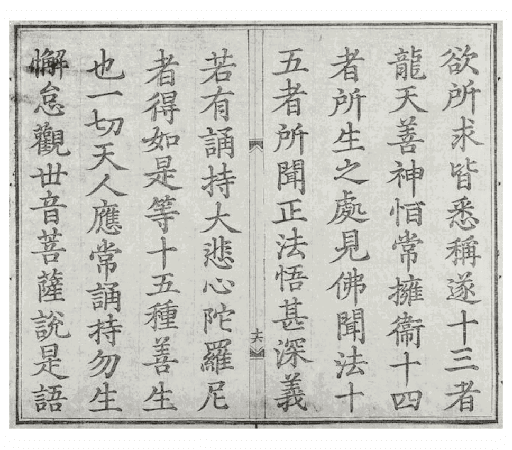 欲所求皆悉稱遂十三者
龍天善神恒常擁衛十四
者所生之處見佛聞法十
五者所聞正法悟甚深義
十六
若有誦持大悲心陀羅尼
者得如是等十五種善生
也一切天人應常誦持勿生
懈怠觀世音菩薩說是語